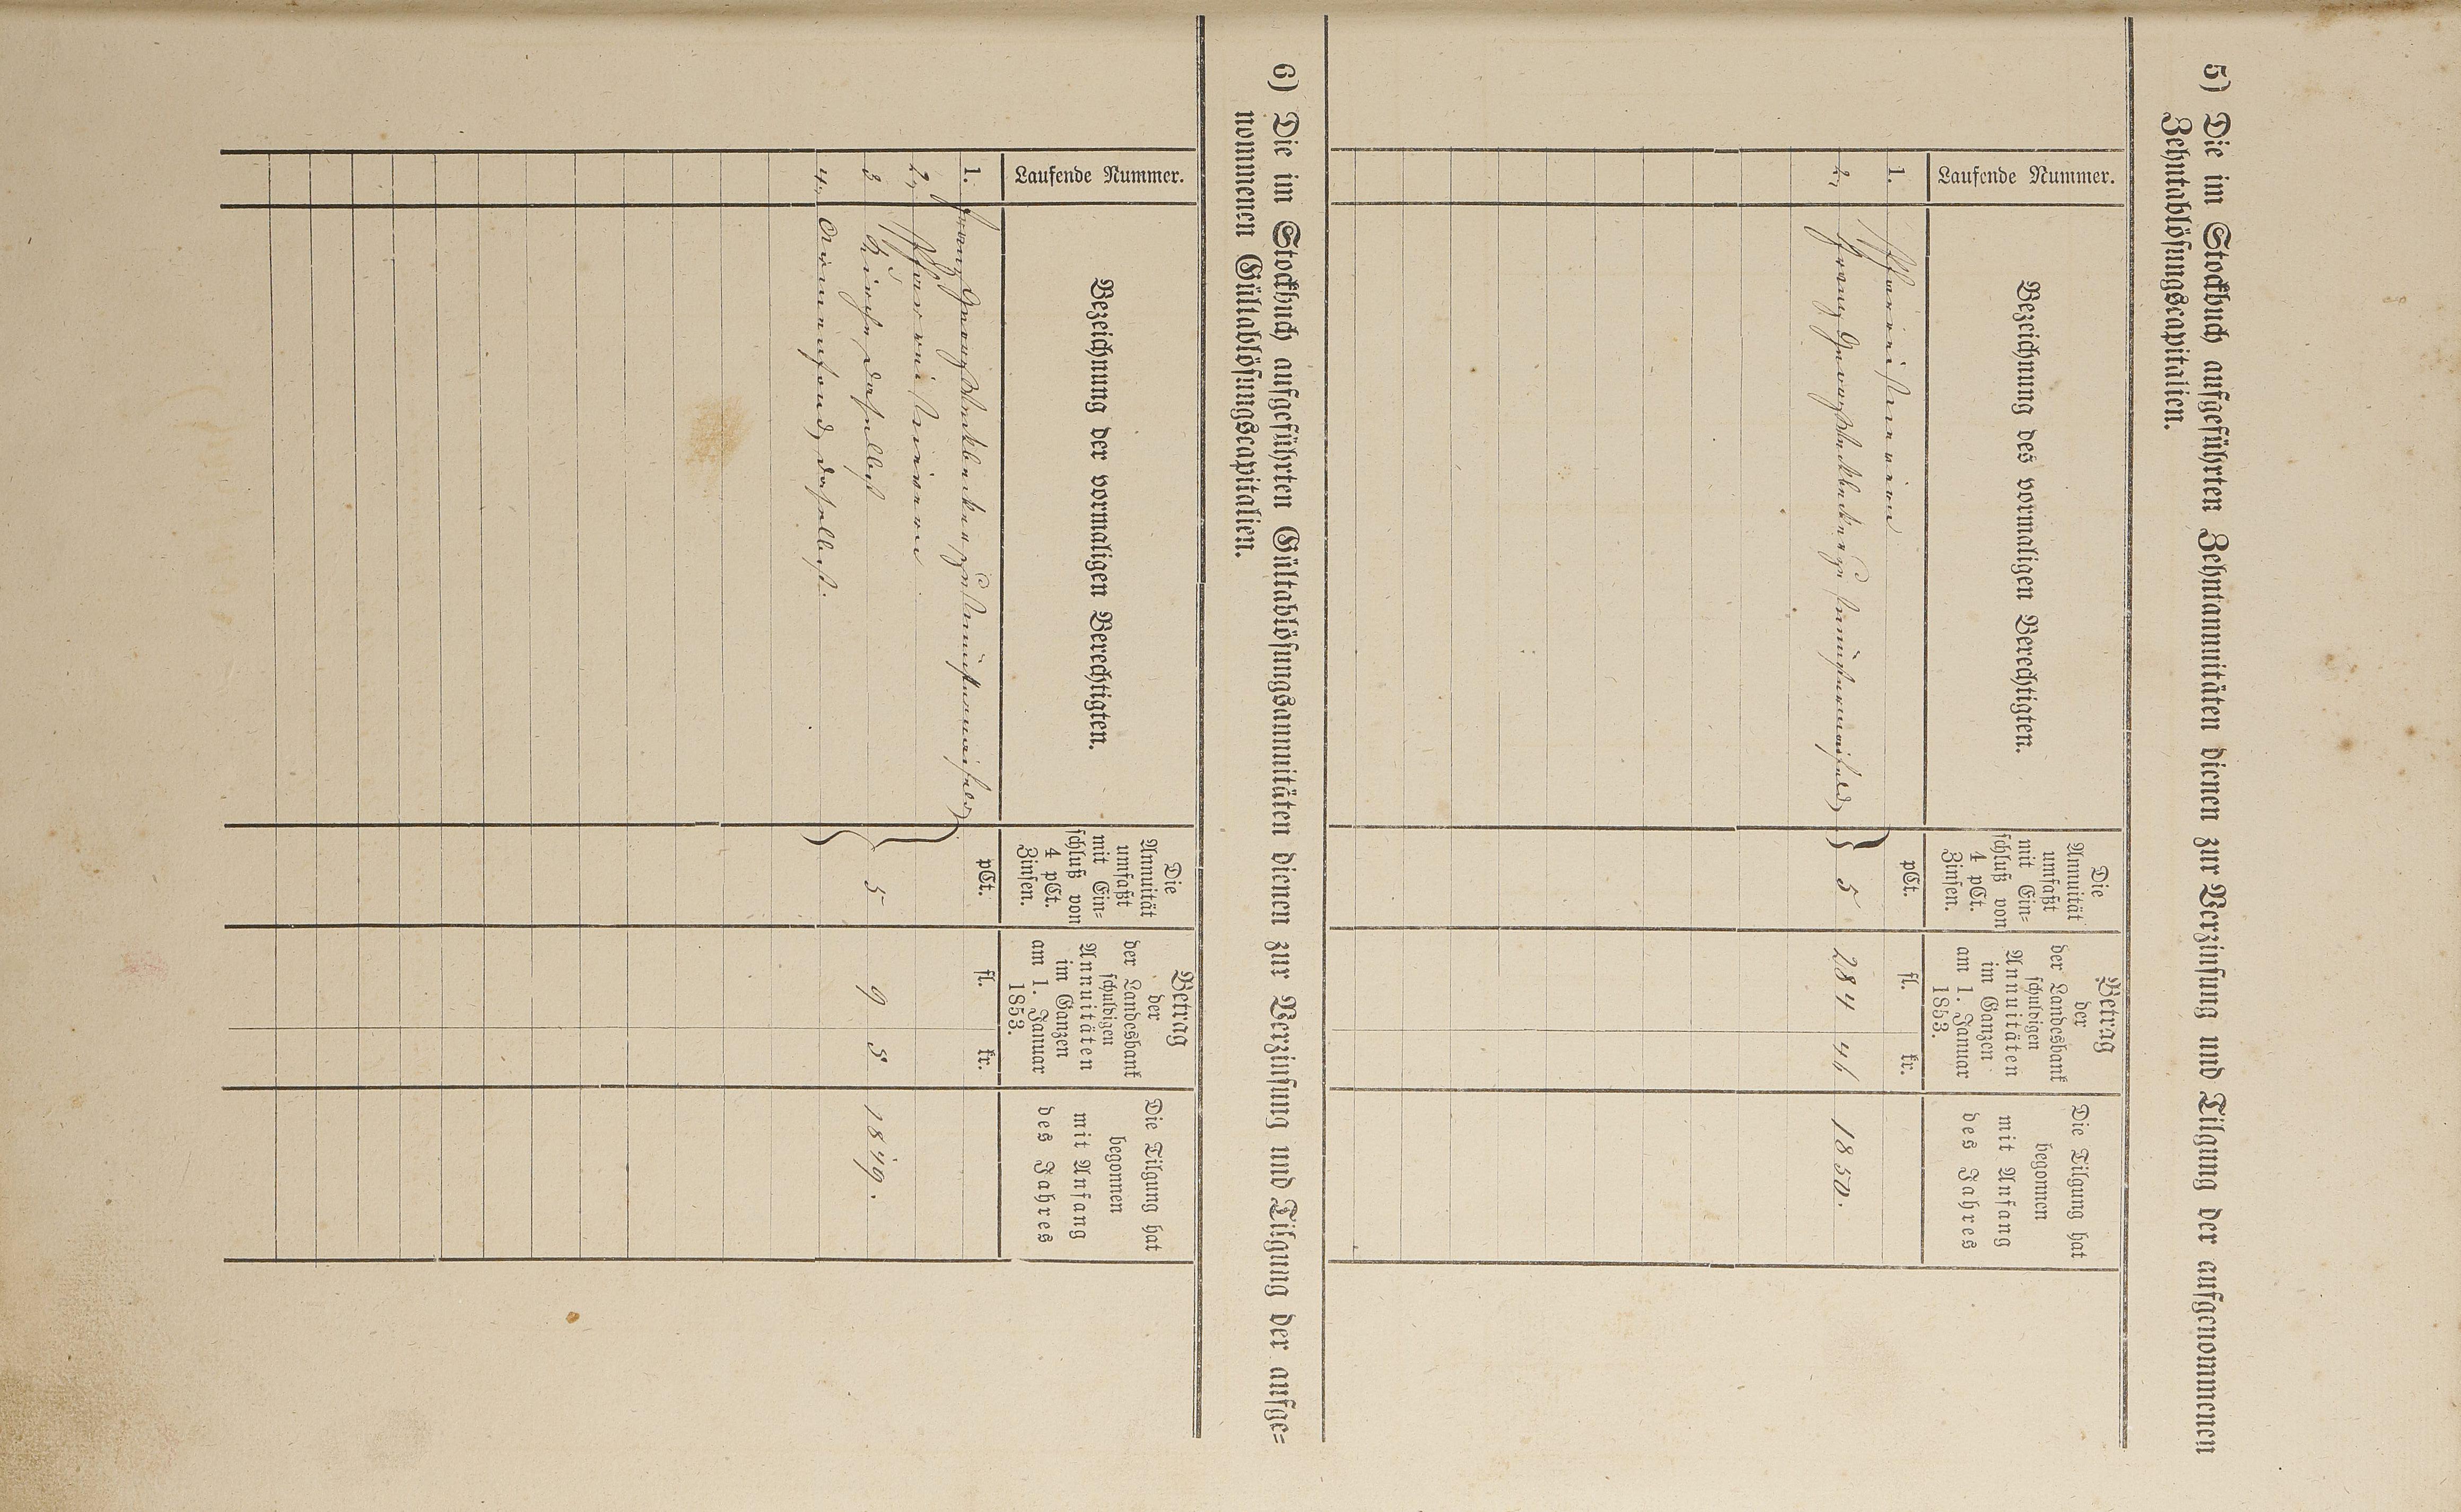 5) Die im Stockbuch aufgeführten Zehntannuitäten dienen zur Verzinsung und Tilgung der aufgenommenen
Zehntablösungscapitalien.
Laufende Nummer.
Bezeichnung des vormaligen Berechtigten.
Die
Annuität
umfaßt
mit Ein=
schluß von
4 pCt.
Zinsen.
Betrag
der
der Landesbank
schuldigen
Annuitäten
im Ganzen
am 1. Januar
1853.
Die Tilgung hat
begonnen
mit Anfang
des Jahres
pCt.
fl.
kr.
1. Pfarrei
2, Franz Georg
5
284
1850.
6) Die im Stockbuch aufgeführten Gültablösungsannuitäten dienen zur Verzinsung und Tilgung der aufge=
nommenen Gültablösungscapitalien.
Laufende Nummer.
Bezeichnung der vormaligen Berechtigten.
Die
Annuität
umfaßt
mit Ein=
schluß von
4 pCt.
Zinsen.
Betrag
der
der Landesbank
schuldigen
Annuitäten
im Ganzen
am 1. Januar
1853.
Die Tilgung hat
begonnen
mit Anfang
des Jahres
pCt.
fl.
kr.
1. Franz Georg
2, Pfarrei
3 Kirche, daselbst
5
9
1849.
4, Armenfond, daselbst.